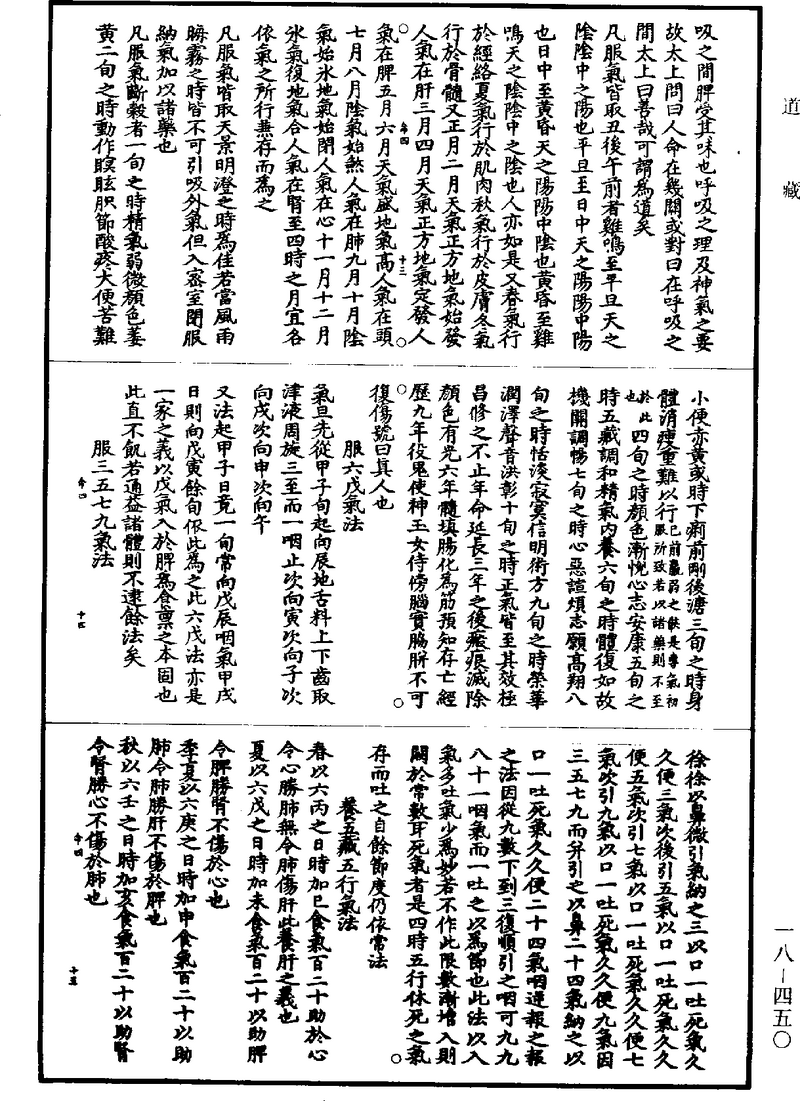 道藏
吸之間脾受其味也呼吸之理及神氣之要
故太上問曰人命在幾間或對曰在呼吸之
間太上曰善哉可謂為道矣
凡服氣皆取丑後午前者雞鳴至平旦天之
陰陰中之陽也平旦至日中天之陽陽中陽
也日中至黃昏天之陽陽中陰也黃昏至雞
鳴天之陰陰中之陰也人亦如是又春氣行
於經絡夏氣行於肌肉秋氣行於皮膚冬氣
行於骨髓又正月二月天氣正方地氣始發
人氣在肝三月四月天氣正方地氣定發人
氣在脾五月六月天氣盛地氣高人氣在頭
七月八月陰氣始煞人氣在肺九月十月陰
氣始氷地氣始閉人氣在心十一月十二月
氷氣復地氣合人氣在腎至四時之月宜各
依氣之所行兼存而為之
凡服氣皆取天景明澄之時為佳若當風雨
晦霧之時皆不可引吸外氣但入密室閉服
納氣加以諸藥也
凡服氣斷穀者一旬之時精氣弱微顏色萎
黃二旬之時動作瞑眩肢節酸疼大便苦難
小便赤黃或時下痢前剛後溏三旬之時身
體消瘦重難以行已前羸弱之候是專氣初服所致若以諸藥則不至
於此也四旬之時顏色漸悅心志安康五旬之
時五藏調和精氣內養六旬之時體復如故
機關調暢七旬之時心惡諠煩志願高翔八
旬之時恬淡寂寞信明術方九旬之時榮華
潤澤聲音洪彰十旬之時正氣皆至其效極
昌修之不止年命延長三年之後瘢痕滅除
顏色有光六年髓填腸化為筋預知存亡經
歷九年役鬼使神玉女侍傍腦實脇胼不可
復傷號曰真人也
服六戊氣法
氣旦先從甲子旬起向辰地舌料上下齒取
津液周旋三至而一咽止次向寅次向子次
向戌次向申次向午
又法起甲子日竟一旬常向戊辰咽氣甲戌
日則向戊寅餘旬依此為之此六戊法亦是
一家之義以戊氣入於脾為食稟之本固也
此直不飢若通益諸體則不逮餘法矣
服三五七九氣法
徐徐以鼻微引氣納之三以口一吐死氣久
久便三氣次後引五氣以口一吐死氣久久
便五氣次引七氣以口一吐死氣久久便七
氣次引九氣以口一吐死氣久久便九氣因
三五七九而并引之以鼻二十四氣納之以
口一吐死氣久久便二十四氣咽逆報之報
之法因從九數下到三復順引之咽可九九
八十一咽氣而一吐之以為節也此法以入
氣多吐氣少為妙若不作此限數漸增入則
闕於常數耳死氣者是四時五行休死之氣
存而吐之自餘節度仍依常法
養五藏五行氣法
春以六丙之日時加巳食氣百二十助於心
令心勝肺無令肺傷肝此養肝之義也
夏以六戊之日時加未食氣百二十以助脾
令脾勝腎不傷於心也
季夏以六庚之日時加申食氣百二十以助
肺令肺勝肝不傷於脾也
秋以六壬之日時加亥食氣百二十以助腎
令腎勝心不傷於肺也
一八—四五〇